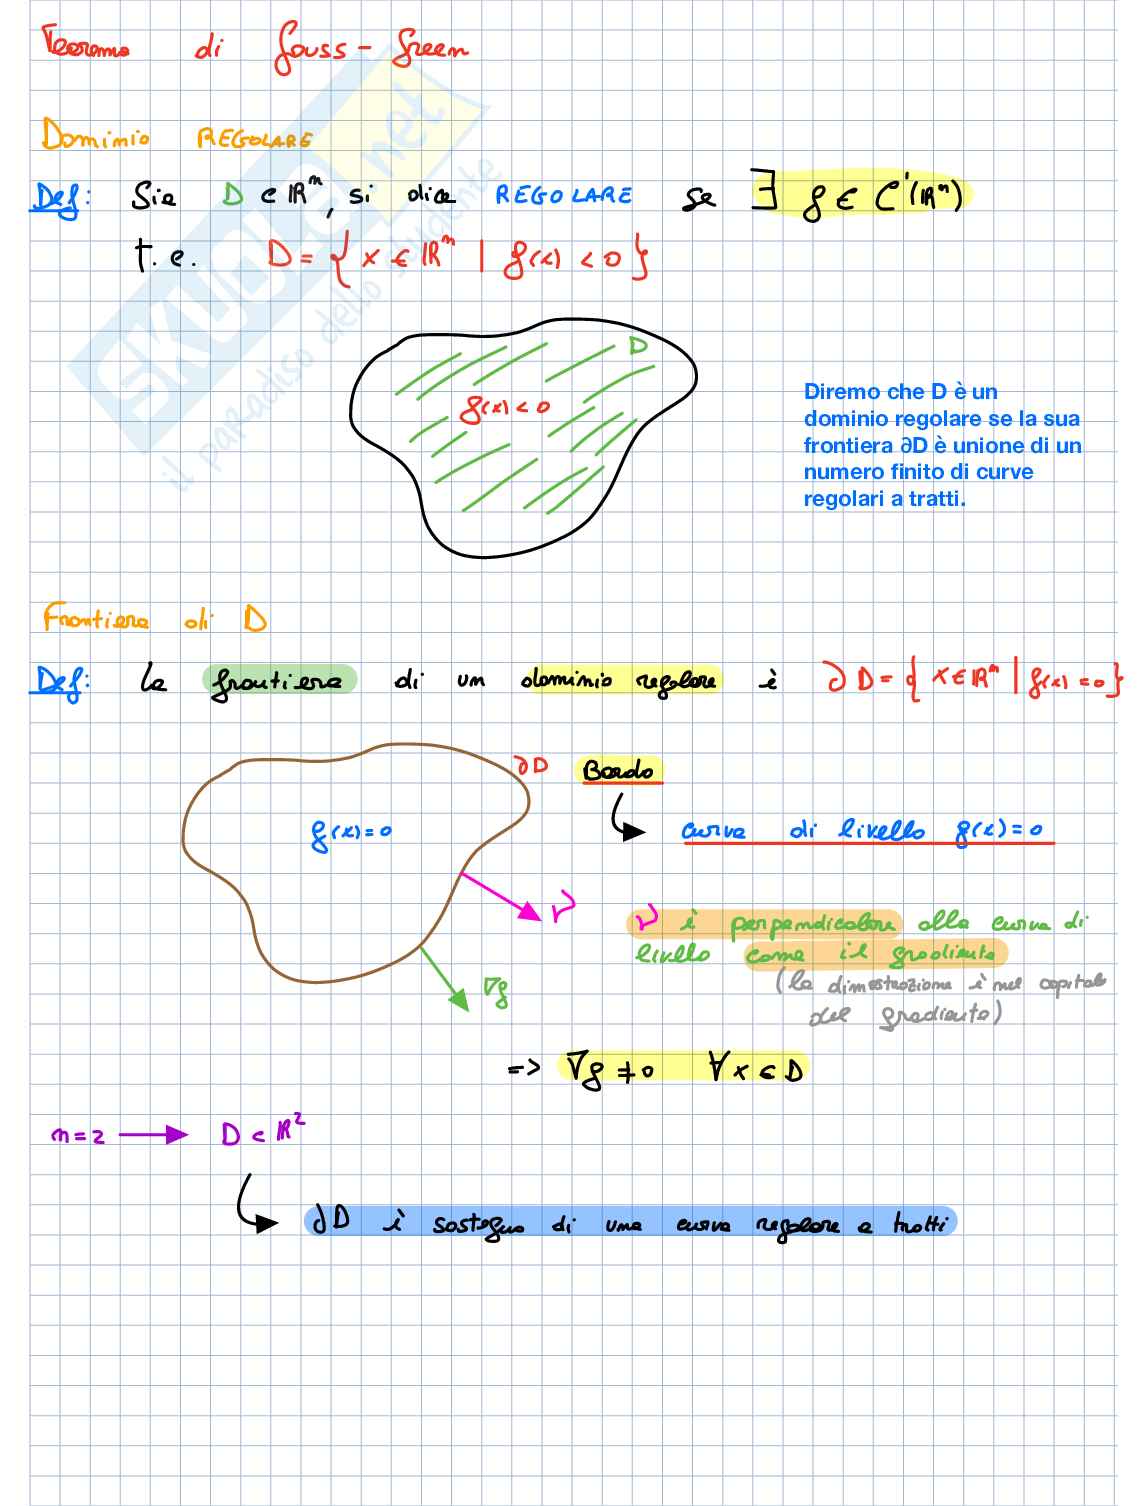 Teorema di Gauss - Green
Dominio REGOLARE
Def: Sia D ⊂ ℝⁿ, si dice REGOLARE se ∃ g ∈ C¹(ℝⁿ)
t.c. D = { x ∈ ℝⁿ | g(x) < 0 }
D
g(x) < 0
Diremo che D è un
dominio regolare se la sua
frontiera ∂D è unione di un
numero finito di curve
regolari a tratti.
Frontiera di D
Def: la frontiera di un dominio regolare è ∂D = { x ∈ ℝⁿ | g(x) = 0 }
∂D Bordo
g(x) = 0
curva di livello g(x) = 0
ν
ν è perpendicolare alla curva di
livello come il gradiente
(la dimostrazione è nel capitolo
del gradiente)
∇g
=> ∇g ≠ 0 ∀ x ∈ D
n = 2 → D ⊂ ℝ²
∂D è sostegno di una curva regolare a tratti
SKUOLA.net
il paradiso dello studente